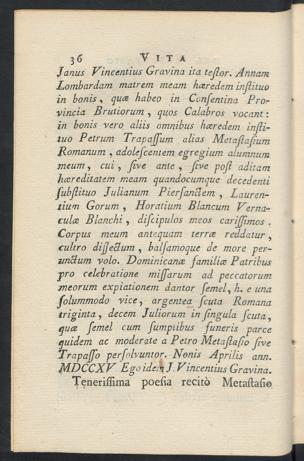 36 VITA
Janus Vincentius Gravina ita teſtor. Annam
Lombardam matrem meam hæredem inſtituo
in bonis, quæ habeo in Conſentina Pro-
vincia Brutiorum, quos Calabros vocant:
in bonis vero aliis omnibus hæredem inſti-
tuo Petrum Trapaſſum alias Metaſtaſium
Romanum, adoleſcentem egregium alumnum
meum, cui, ſive ante, ſive poſt aditam
hæreditatem meam quandocumque decedenti
ſubſtituo Julianum Pierſanctem, Lauren-
tium Gorum, Horatium Blancum Verna-
culæ Blanchi, diſcipulos meos cariſſimos.
Corpus meum antequam terræ reddatur,
cultro diſſectum, balſamoque de more per-
unctum volo. Dominicanæ familiæ Patribus
pro celebratione miſſarum ad peccatorum
meorum expiationem dantor ſemel, h. e una
ſolummodo vice, argentea ſcuta Romana
triginta, decem Juliorum in ſingula ſcuta,
quæ ſemel cum ſumptibus funeris parce
quidem ac moderate a Petro Metaſtaſio ſive
Trapaſſo perſolvuntor. Nonis Aprilis ann.
MDCCXV Ego idem J. Vincentius Gravina.
Teneriſſima poeſia recitò Metaſtaſio